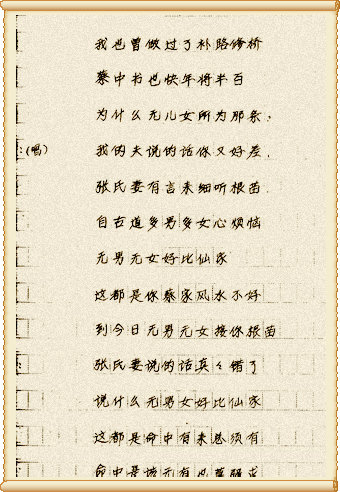 我也曾做过了补路修桥
蔡中书也快年将半百
为什么无儿女所为那条：
：(唱) 我的夫说的话你又好差.
张氏妻有言来细听根苗.
自古道多男多女心烦恼
无男无女好比仙家
这都是你蔡家风水不好
到今日无男无女接你根苗
张氏妻说的话真々错了
说什么无男女好比仙家
这都是命中有来总须有
命中是该无有也莫强求